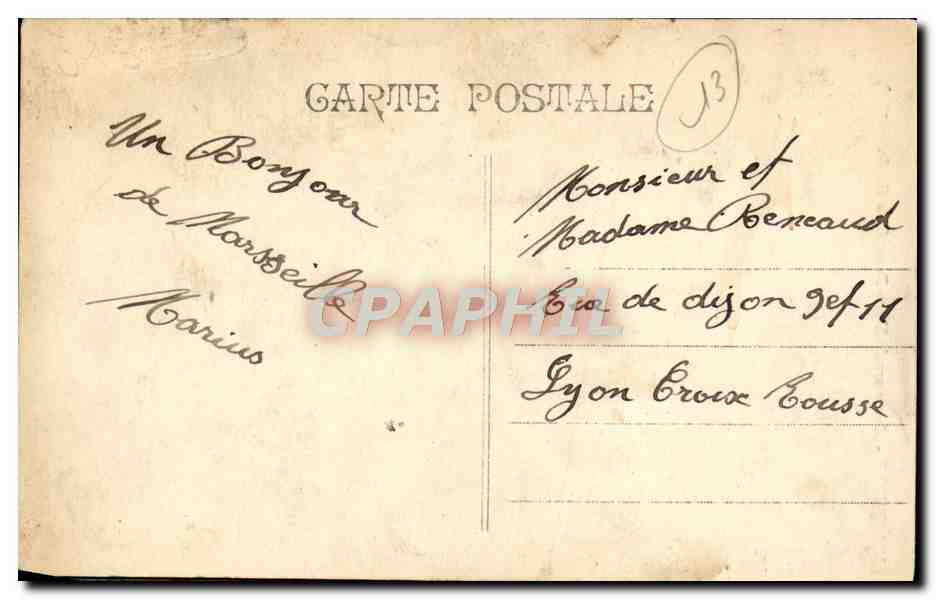 CARTE POSTALE
13
Un Bonjour
de Marsseille
Marius
Monsieur et
Madame Reneaud
Rue de dijon 9 et 11
Lyon Croix Rousse
CPAPHIL